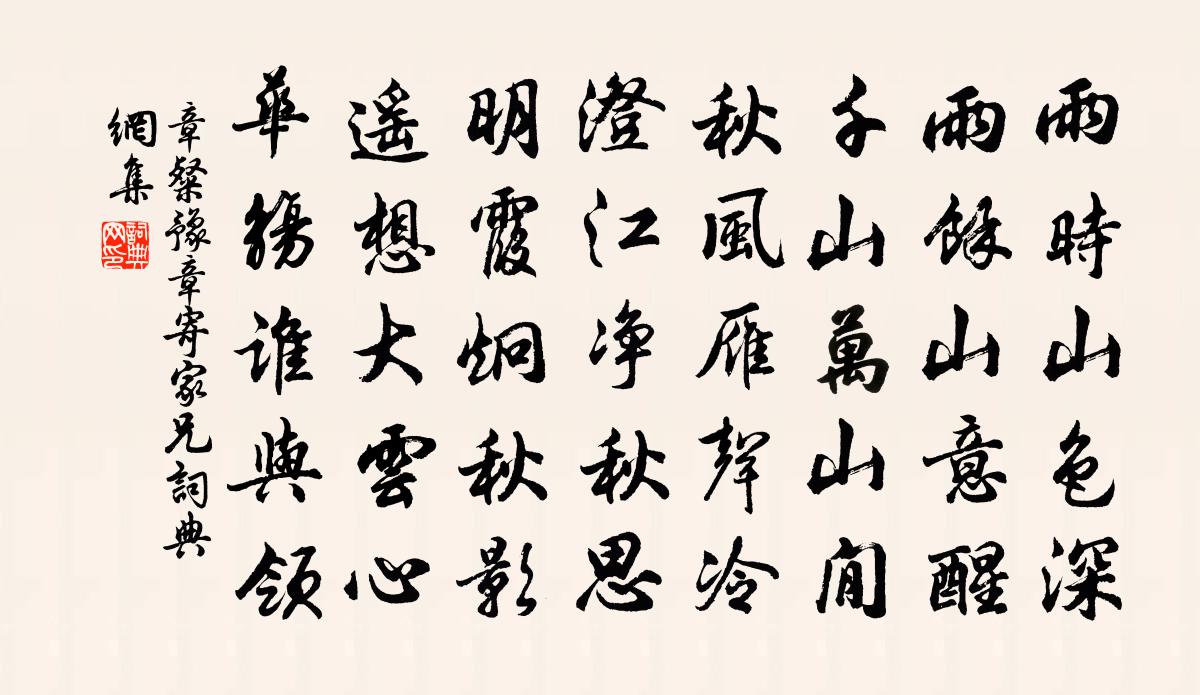 雨時山色深
雨餘山意醒
千山萬山間
秋風雁聲冷
澄江淨秋思
明霞炯秋影
遥想大雲心
華觴誰與領
章粲豫章寄家兄詞典
網集
詞典網印